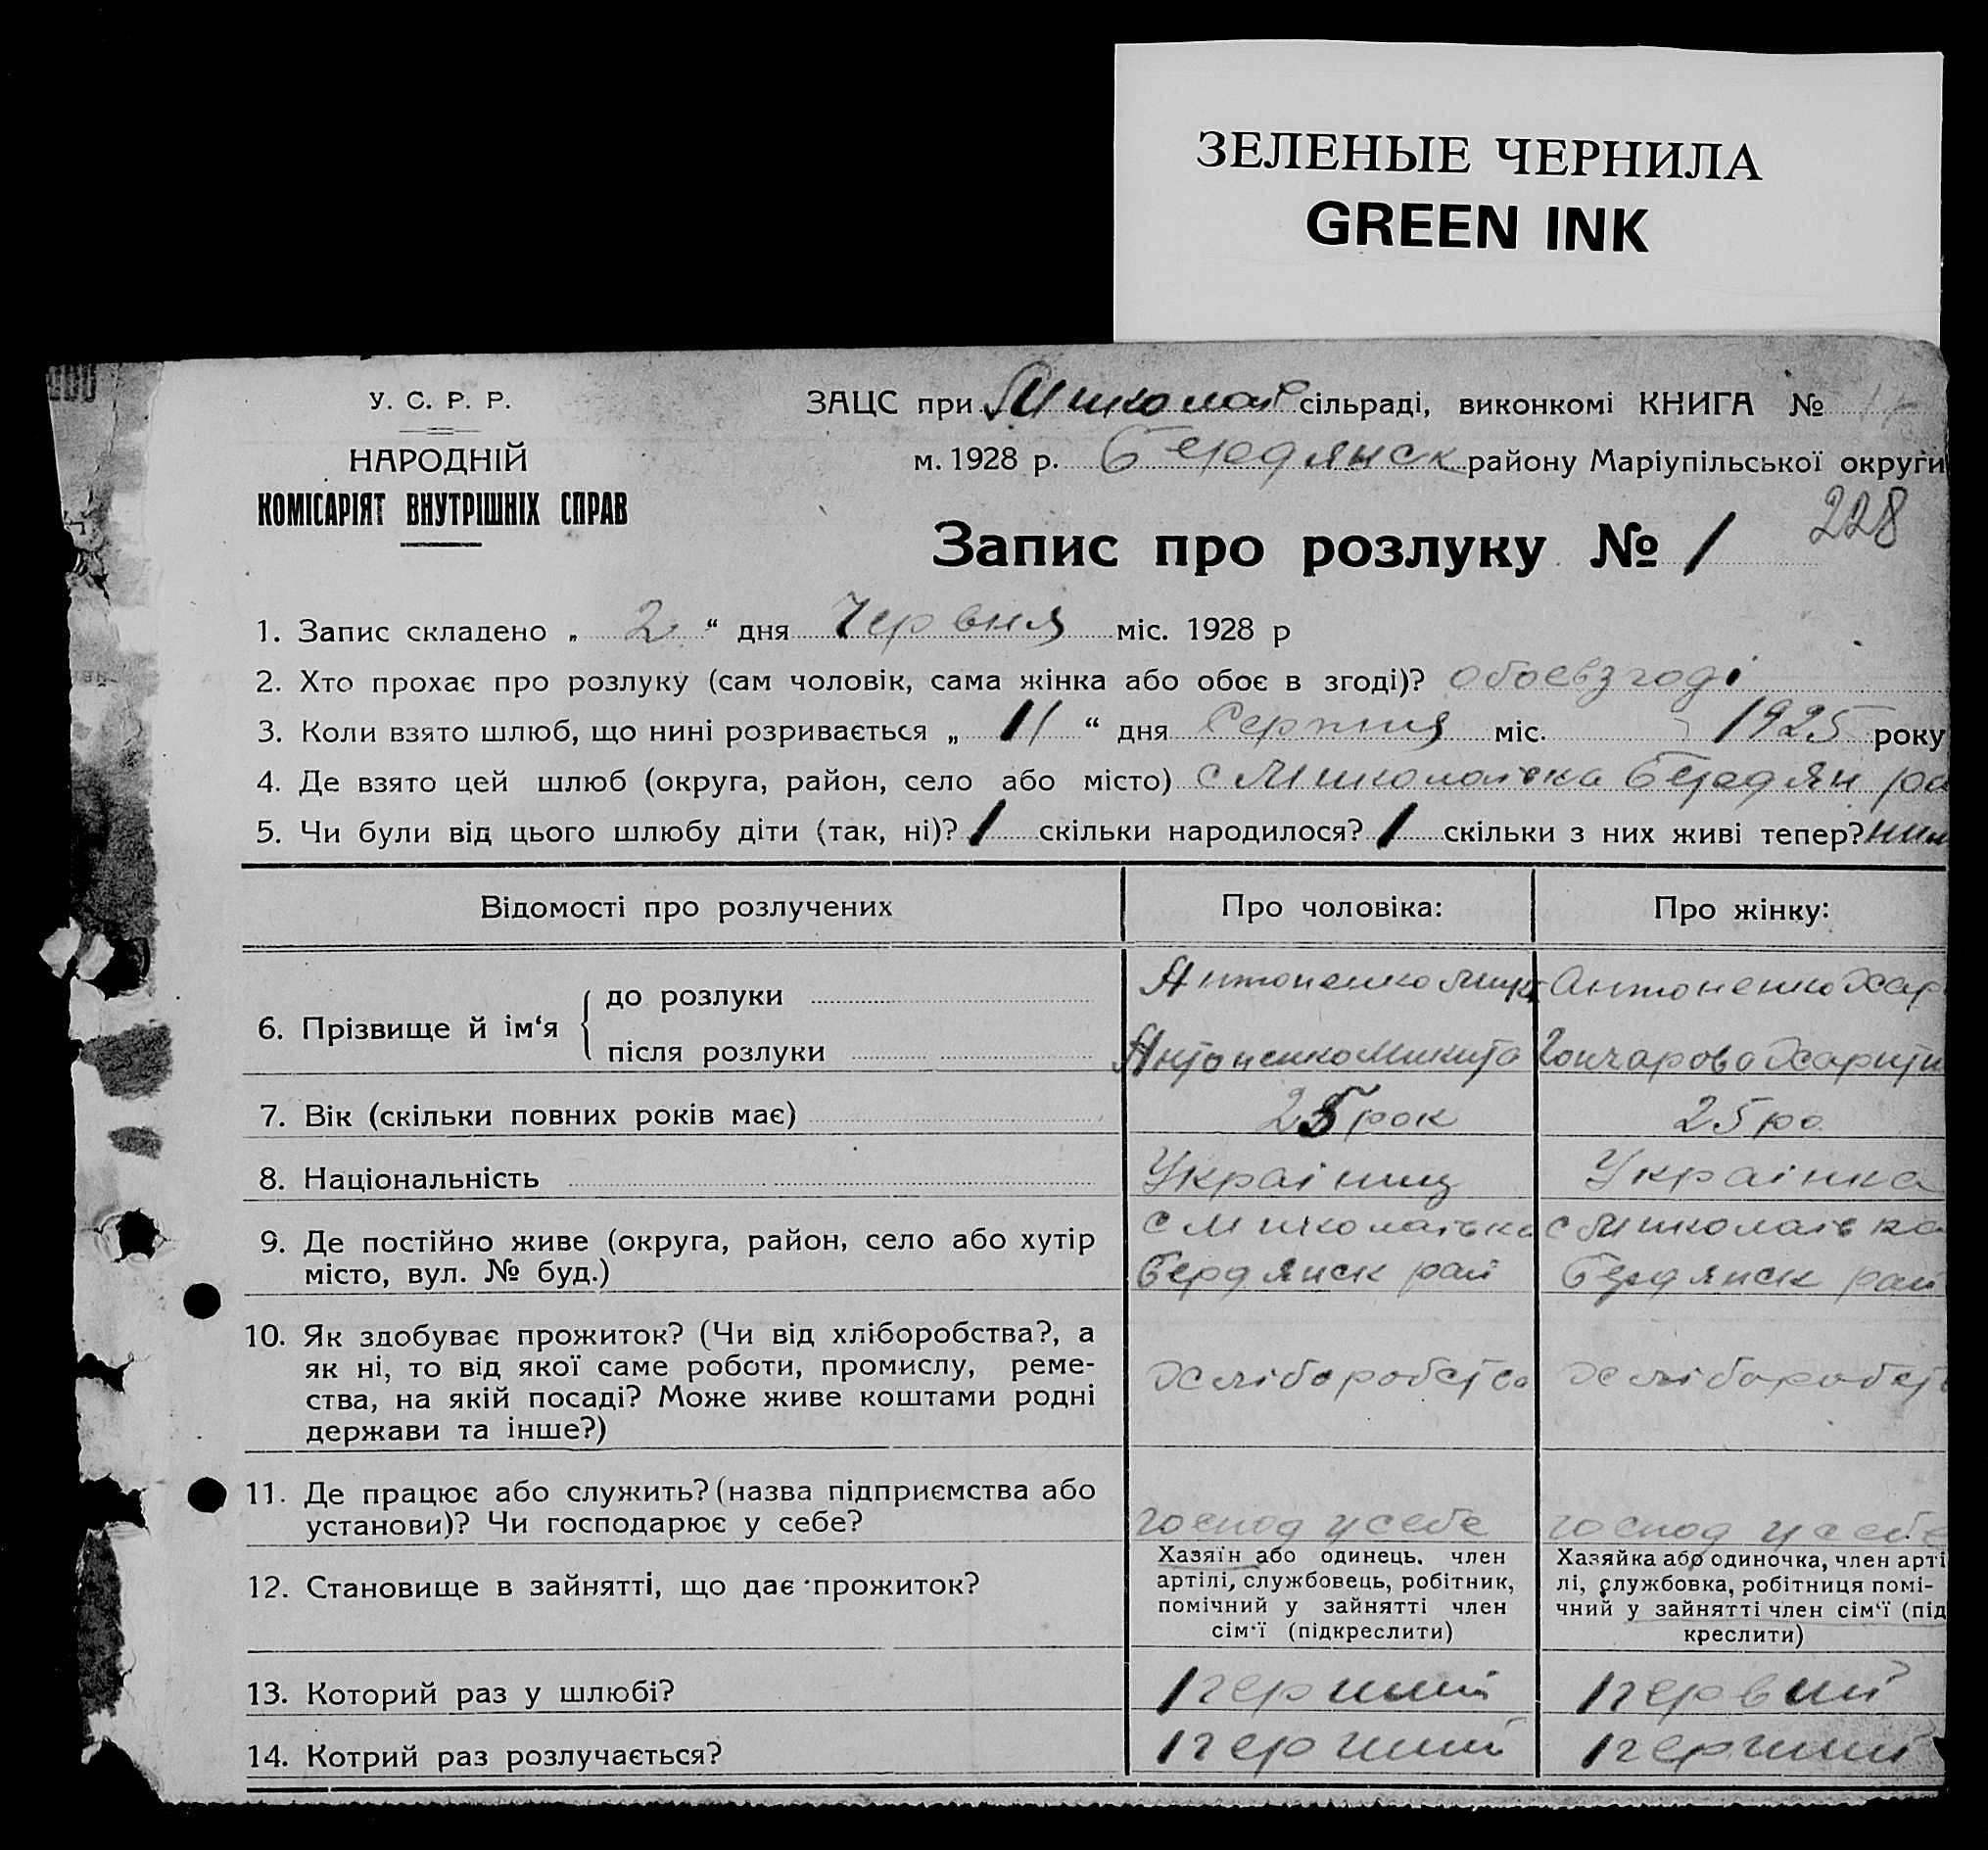 ЗЕЛЕНЫЕ ЧЕРНИЛА
GREEN INK
У. С. Р. Р.
НАРОДНІЙ
КОМІСАРІЯТ ВНУТРІШНІХ СПРАВ
ЗАЦС при Миколаїв сільраді, виконкомі КНИГА №
м. 1928 р. Бердянск району Маріупільської округи
228
Запис про розлуку № 1
1. Запис складено „ 2 “ дня Червня міс. 1928 р
2. Хто прохає про розлуку (сам чоловік, сама жінка або обоє в згоді)? обоє в згоді
3. Коли взято шлюб, що нині розривається „ 11 “ дня Серпня міс. 1925 року
4. Де взято цей шлюб (округа, район, село або місто) с Миколаївка Бердян ра
5. Чи були від цього шлюбу діти (так, ні)? 1 скільки народилося? 1 скільки з них живі тепер?
Відомості про розлучених
Про чоловіка:
Про жінку:
6. Прізвище й ім‘я
до розлуки
Антоненко Мик
Антоненко Хар
після розлуки
Антоненко Микита
Гончарова Харити
7. Вік (скільки повних років має)
25 рок
25 ро
8. Національність
Українц
Українка
9. Де постійно живе (округа, район, село або хутір
місто, вул. № буд.)
с Миколаївка
Бердянск рай
с Миколаївка
Бердянск рай
10. Як здобуває прожиток? (Чи від хліборобства?, а
як ні, то від якої саме роботи, промислу, реме-
ства, на якій посаді? Може живе коштами родні
держави та інше?)
Хліборобство
Хліборобст
11. Де працює або служить? (назва підприємства або
установи)? Чи господарює у себе?
господ у себе
господ у себе
12. Становище в зайнятті, що дає прожиток?
Хазяїн або одинець, член
артілі, службовець, робітник,
помічний у зайнятті член
сім‘ї (підкреслити)
Хазяйка або одиночка, член арті
лі, службовка, робітниця помі-
чний у зайнятті член сім‘ї (під
креслити)
13. Которий раз у шлюбі?
перший
первий
14. Котрий раз розлучається?
перший
перший